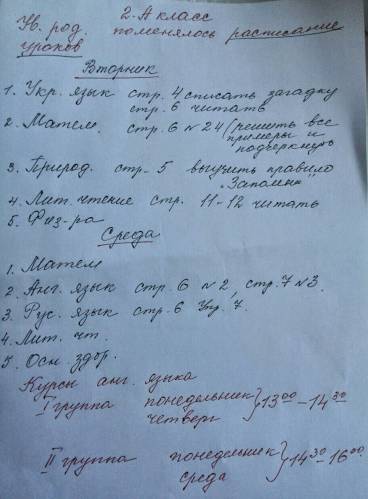 2-А класс
Ув. род. поменялось расписание
уроков
Вторник
1. Укр. язык стр. 4 списать загадку
стр. 6 читать
2. Матем. стр. 6 №24 (решить все
примеры и
подчеркнуть
3. Природ. стр-5 выучить правило
"Запомни"
4. Лит. чтение стр. 11-12 читать
5. Физ-ра
Среда
1. Матем
2. Анг. язык стр. 6 №2, стр. 7 №3.
3. Рус. язык стр. 6 Упр. 7.
4. Лит. чт.
5. Осн. здор.
Курсы анг. языка
I группа понедельник
четверг } 13 00 - 14 30
II группа понедельник
среда } 14 30 16 00